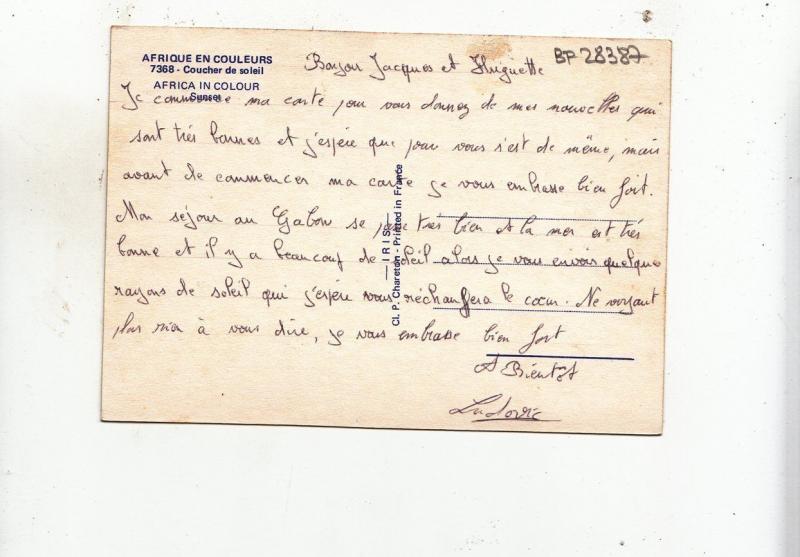 AFRIQUE EN COULEURS
7368 - Coucher de soleil
AFRICA IN COLOUR
Sunset
BP 28387
Bonjour Jacques et Huguette
Je commence ma carte pour vous donnez de mes nouvelles qui
sont très bonnes et j'espère que pour vous s'est de même, mais
avant de commencer ma carte je vous embrasse bien fort.
Mon séjour au Gabon se passe très bien et la mer est très
bonne et il y a beaucoup de soleil alors je vous envois quelque
rayons de soleil qui j'espère vous réchauffera le cœur. Ne voyant
plus rien à vous dire, je vous embrasse bien fort
A Bientot
Ludovic
IRIS
Cl. P. Chareton - Printed in France